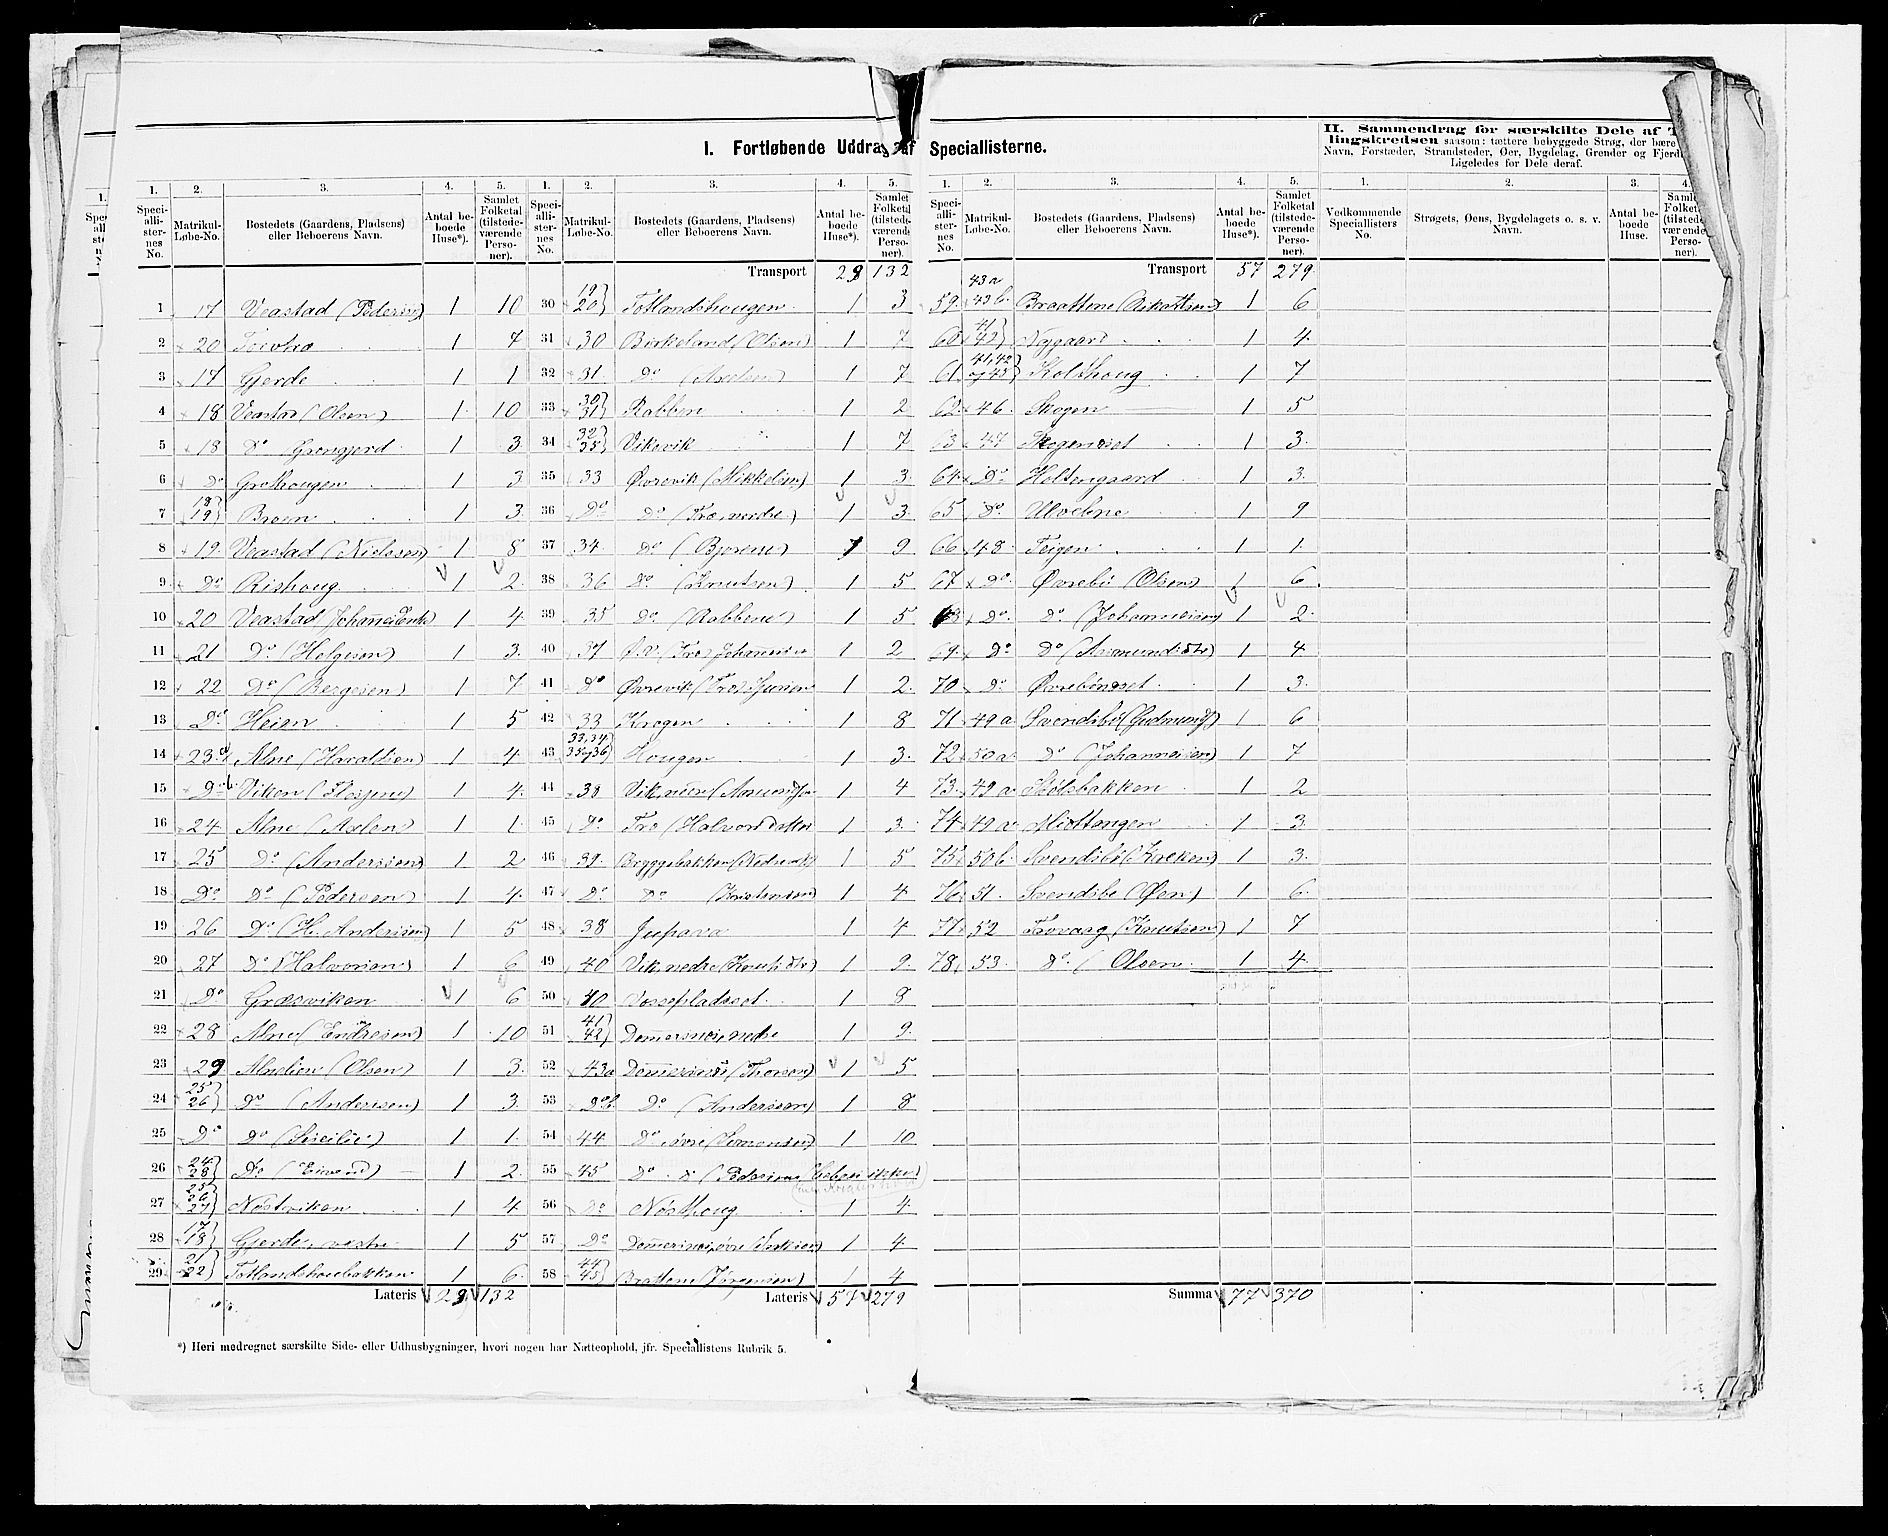 I. Fortløbende Uddrag af Speciallisterne.
II. Sammendrag for særskilte Dele af
lingskredsen saasom: tættere bebyggede Strøg, der bære
Navn, Forstæder, Strandsteder, Øer, Bygdelag, Grender og Fjerd
Ligeledes for Dele deraf.
1. 2. 3. 4. 5. 1. 2. 3. 4. 5.
Speciallisternes No. Matrikul-Løbe-No. Bostedets (Gaardens, Pladsens) eller Beboerens Navn. Antal beboede Huse*). Samlet Folketal (tilstedeværende Personer).
1 17 Veastad (Pedersen) 1 10
2 20 1 7
3 17 Gjerde 1 1
4 18 Veastad (Olsen) 1 10
5 18 Do 1 3
6 Do Grothougen 1 3
7 18 19 Broen 1 3
8 19 Veastad (Nielssen) 1 8
9 Do Rishoug 1 2
10 20 Veastad 1 4
11 21 Do (Helgesen) 1 3
12 22 Do (Bergesen) 1 7
13 Do Heien 1 5
14 23a Alne (Haraldsen) 1 4
15 Do b Viken 1 4
16 24 Alne (Axelsen) 1 1
17 25 Do (Anderssen) 1 2
18 Do Do (Pedersen) 1 4
19 26 Do (H. Anderssen) 1 5
20 27 Do (Halvorsen) 1 6
21 Do Græsviken 1 6
22 28 Alne (Endresen) 1 10
23 29 Alnelien (Olsen) 1 3
24 25 26 Do (Anderssen) 1 3
25 Do Do 1 1
26 Do 1 2
27 25 26 27 Nøstviken 1 4
28 17 18 Gjerde, vestre 1 5
29 21 22 Totlandshoubakken 1 6
Lateris 29 132
Transport 29 132
30 19 20 Totlandshougen 1 3
31 30 Birkeland (Olsen) 1 7
32 31 Do 1 7
33 30 31 Rabben 1 2
34 32 35 Viksvik 1 7
35 33 Øvrevik (Mikkelsen) 1 3
36 Do Do 1 3
37 34 Do 1 9
38 36 Do (Knutsen) 1 5
39 35 Do (Rabbene) 1 5
40 37 1 2
41 Do Øvrevik 1 2
42 33 Krogen 1 8
43 33,34 35 og 36 Hougen 1 3
44 38 Vik, nedre 1 4
45 Do 1 3
46 39 Bryggebakken 1 5
47 Do Do (Kristensen) 1 4
48 38 Jupava 1 4
49 40 Vik, nedre 1 9
50 40 Vossepladsset 1 8
51 41 42 Dommersnes, nedre 1 9
52 43a (Thorsen) 1 5
53 Do b Do (Anderssen) 1 8
54 44 Do øvre (Simonsen) 1 10
55 45 Do (bebos ikke)
56 Do Nøsthoug 1 4
57 Do 1 4
58 44 45 Brattene (Jørgensen) 1 4
Lateris 57 279
Transport 57 279
59 43a 43b Braattene 1 6
60 41 42 Nygaard 1 4
61 41, 42 og 45 Kolshoug 1 7
62 46 Skogen 1 5
63 47 Skogeneset 1 3
64 Do Holtengaard 1 3
65 Do 1 9
66 48 Teigen 1 1
67 Do Øvrebø (Olsen) 1 6
68 Do Do (Johannessen) 1 2
69 Do Do 1 4
70 Do Øvrebøneset 1 3
71 49a Svendsbø 1 6
72 50a Do (Johannessen) 1 7
73 49a Stølsbakken 1 2
74 49a 1 3
75 50b Svendsbø 1 3
76 51 Svendsbø (Øen) 1 6
77 52 (Knutsen) 1 7
78 53 Do (Olsen 1 4
Summa 77 370
1. 2. 3. 4.
Vedkommende Speciallisters No. Strøgets, Øens, Bygdelagets o. s. v. Navn. Antal beboede Huse. Samlet Folketal (tilstedeværende Personer).
*) Heri medregnet særskilte Side- eller Udhusbygninger, hvori nogen har Natteophold, jfr. Speciallistens Rubrik 5.